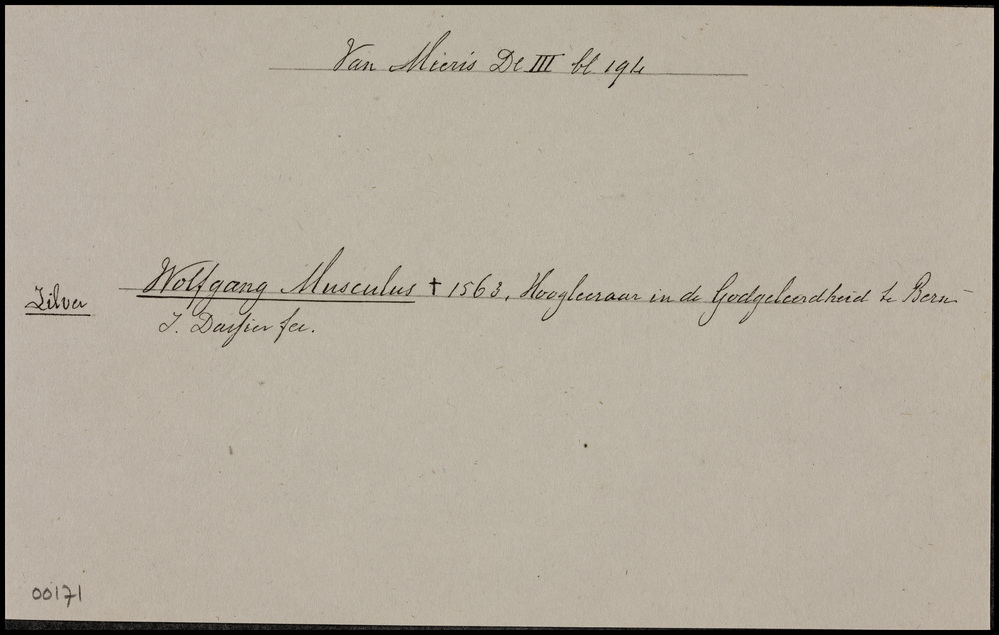 Van Mieris Dl III bl 194
Zilver Wolfgang Musculus † 1563, Hoogleeraar in de Godgeleerdheid te Bern
J. Dassier fec.
00171